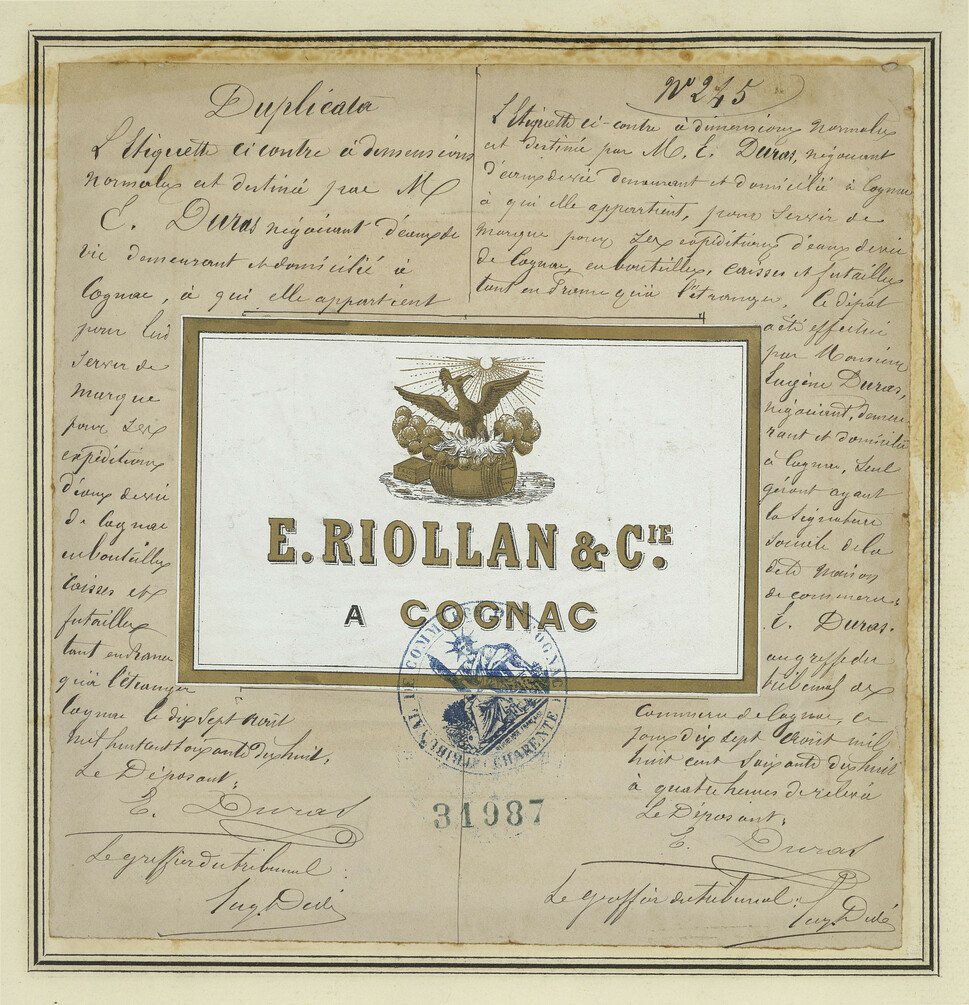 Duplicata
L'Etiquette ci contre à dimensions
normales est destinée par M
E. Duras négociant d'eaux de
vie demeurant et domicilié à
Cognac, à qui elle appartient
pour lui
servir de
marque
pour ses
expéditions
d'eaux de vie
de Cognac
en bouteilles
caisses et
futailles
tant en France
qu'à l'étranger
Cognac le dix sept Août
mil huit cent soixante dix huit,
Le Déposant,
E. Duras
Le greffier du tribunal:
Nº 245
L'Etiquette ci-contre à dimensions normales
est destinée par M. E. Duras, négociant
d'eaux de vie demeurant et domicilié à Cognac
à qui elle appartient, pour servir de
marque pour ses expéditions d'eaux de vie
de Cognac, en bouteilles, caisses et futailles
tant en France qu'à l'étranger. Le dépôt
a été effectué
par Monsieur
Eugène Duras,
négociant, demeu-
rant et domicilié
à Cognac, seul
gérant ayant
la signature
sociale de la
dite maison
de commerce
E. Duras.
au greffe du
tribunal de
Commerce de Cognac, ce
jour dix sept Août mil
huit cent soixante dix huit
à quatre heures de relevé
Le Déposant,
E. Duras
Le greffier du tribunal:
E. RIOLLAN & CIE.
A COGNAC
TRIBUNAL DE COMMERCE DE COGNAC
(CHARENTE)
31987